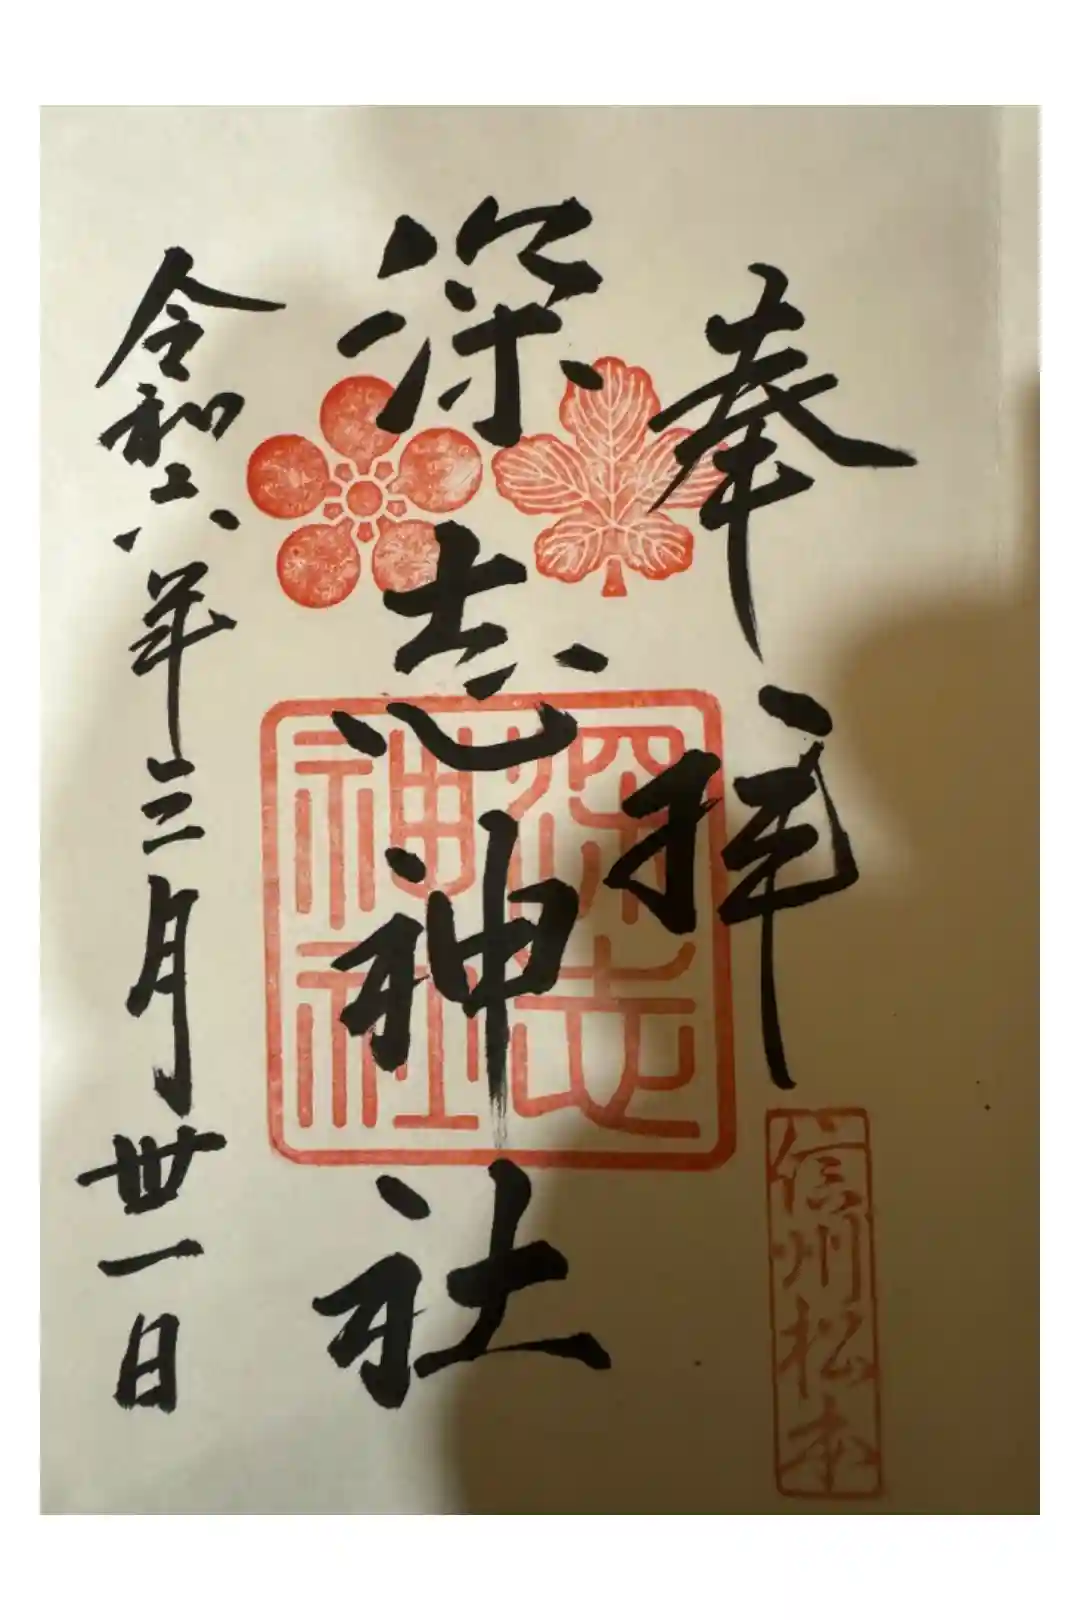 奉拝
信州松本
深志神社
深志
神社
令和六年三月卅一日